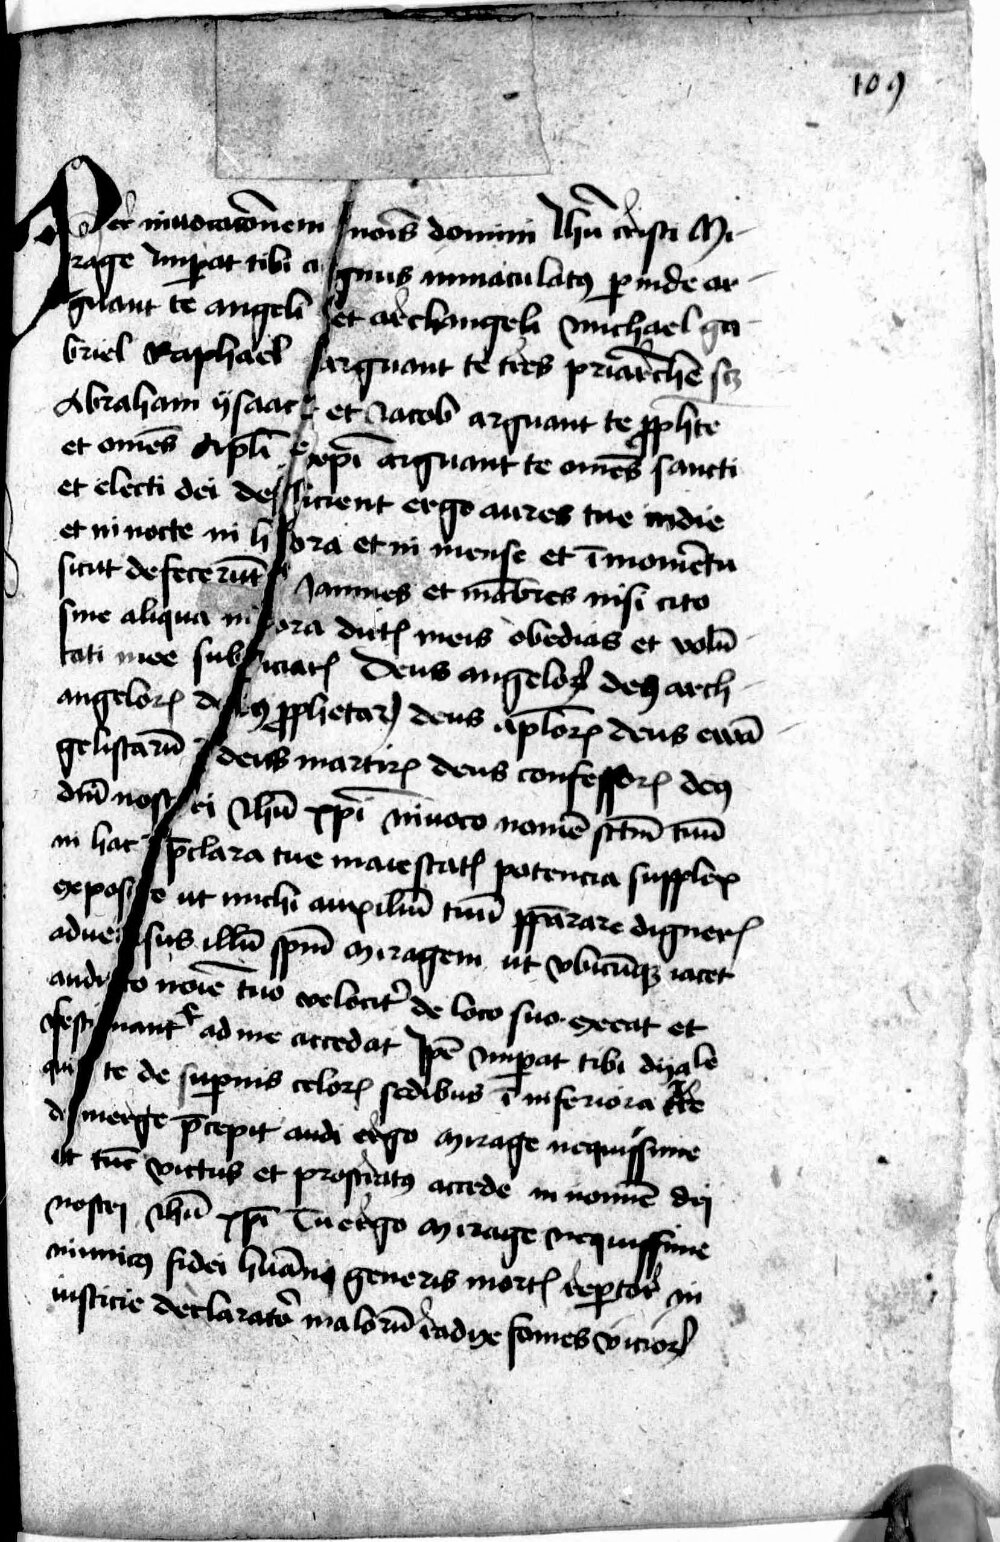 109
Per invocacōnem noīs domini Jhū cristi Mi-
rage Imperat tibi agnus inmaculatus perinde ar-
guant te angeli et archangeli michael ga-
briel Raphael arguant te tres priarche scz
Abraham ysaac et Jacob arguant te prophete
et omēs Apli xpi arguant te omēs sancti
et electi dei defficient ergo aures tue in die
et in nocte in hora et in mense et ī momētu
sicut defecerūt Jannes et mābres nisi cito
sine aliqua mora dictis meis obedias et volū-
tati mee subiciaris Deus angelorum deus arch-
angelorum deus prophetarum deus aplorum deus ewā-
gelistarum deus martirum deus confessorum deus
dni nostri Jhū xpi invoco nomē sctm tuū
in hac preclara tue maiestatis potencia supplex
exposce ut michi auxiliū tuū preparare digneris
adversus illū spm miragem ut ubicūqz iacet
audito noīe tuo velociter de loco suo exeat et
festinanter ad me accedat Ipe imperat tibi dyale
qui te de supernis celorum sedibus ī inferiora tre
demerge precepit audi ergo mirage nequissime
et tuc victus et prostratus accede in nomine dei
nostri Jhū xpi Tu ergo mirage nequissime
inimicus fidei huāni generis mortis repertor in
iusticie declarator malorū radix fomes viciorum